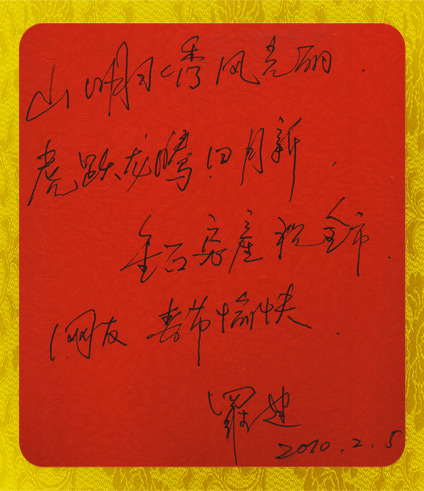 山明水秀风光丽.
虎跃龙腾日月新.
金百房产祝全市.
网友 春节愉快.
罗建
2010.2.5